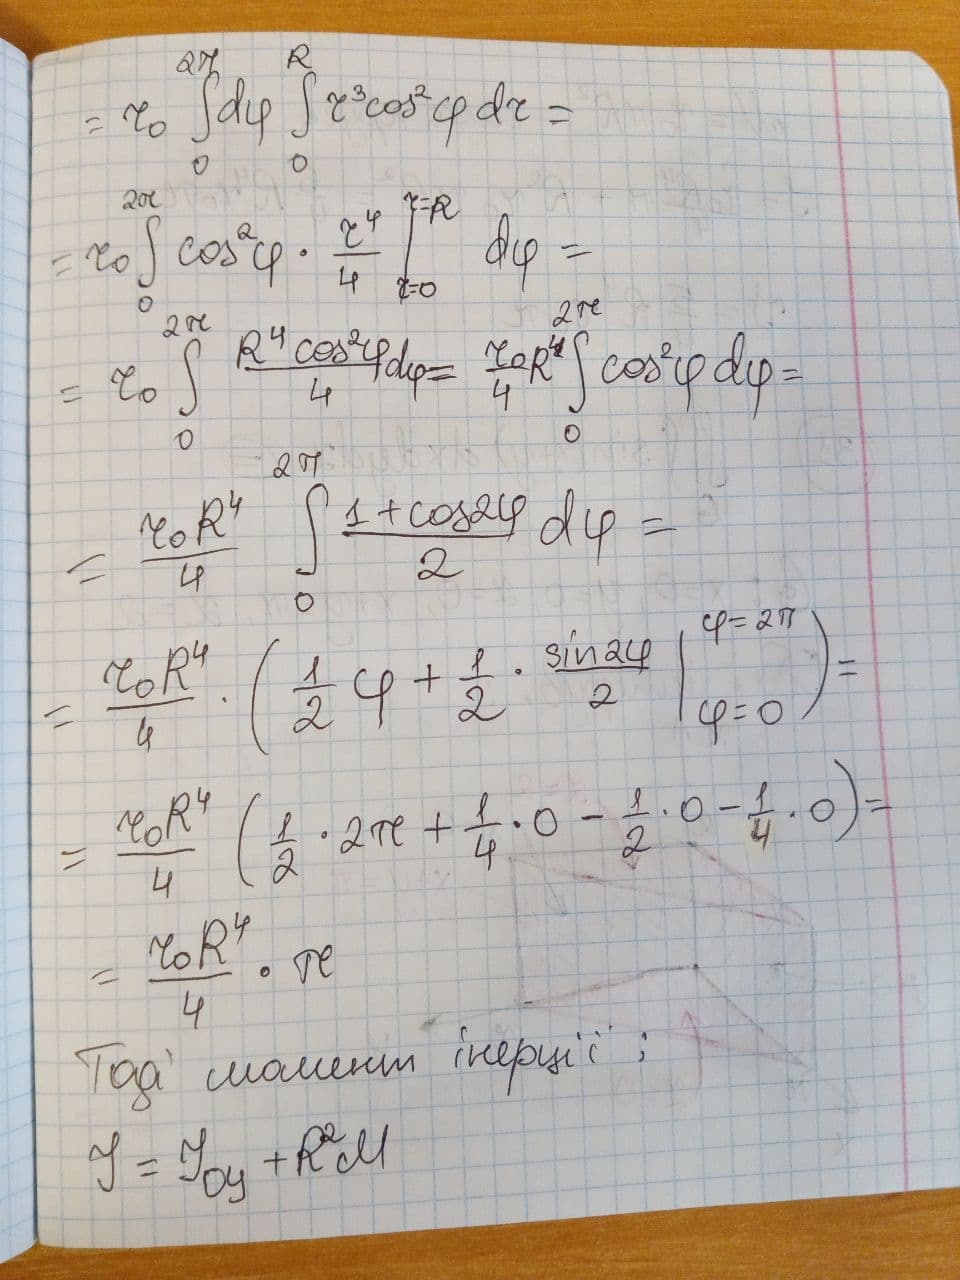 = r₀ ∫₀^{2π} dφ ∫₀^{R} r³cos²φ dr =
= r₀ ∫₀^{2π} cos²φ · r⁴/4 |_{r=0}^{r=R} dφ =
= r₀ ∫₀^{2π} R⁴cos²φ/4 dφ = r₀R⁴/4 ∫₀^{2π} cos²φ dφ =
= r₀R⁴/4 ∫₀^{2π} (1+cos2φ)/2 dφ =
= r₀R⁴/4 · (1/2 φ + 1/2 · sin2φ/2 |_{φ=0}^{φ=2π}) =
= r₀R⁴/4 (1/2 · 2π + 1/4 · 0 − 1/2 · 0 − 1/4 · 0) =
= r₀R⁴/4 · π
Тоді момент інерції:
J = J_{Oy} + R²M